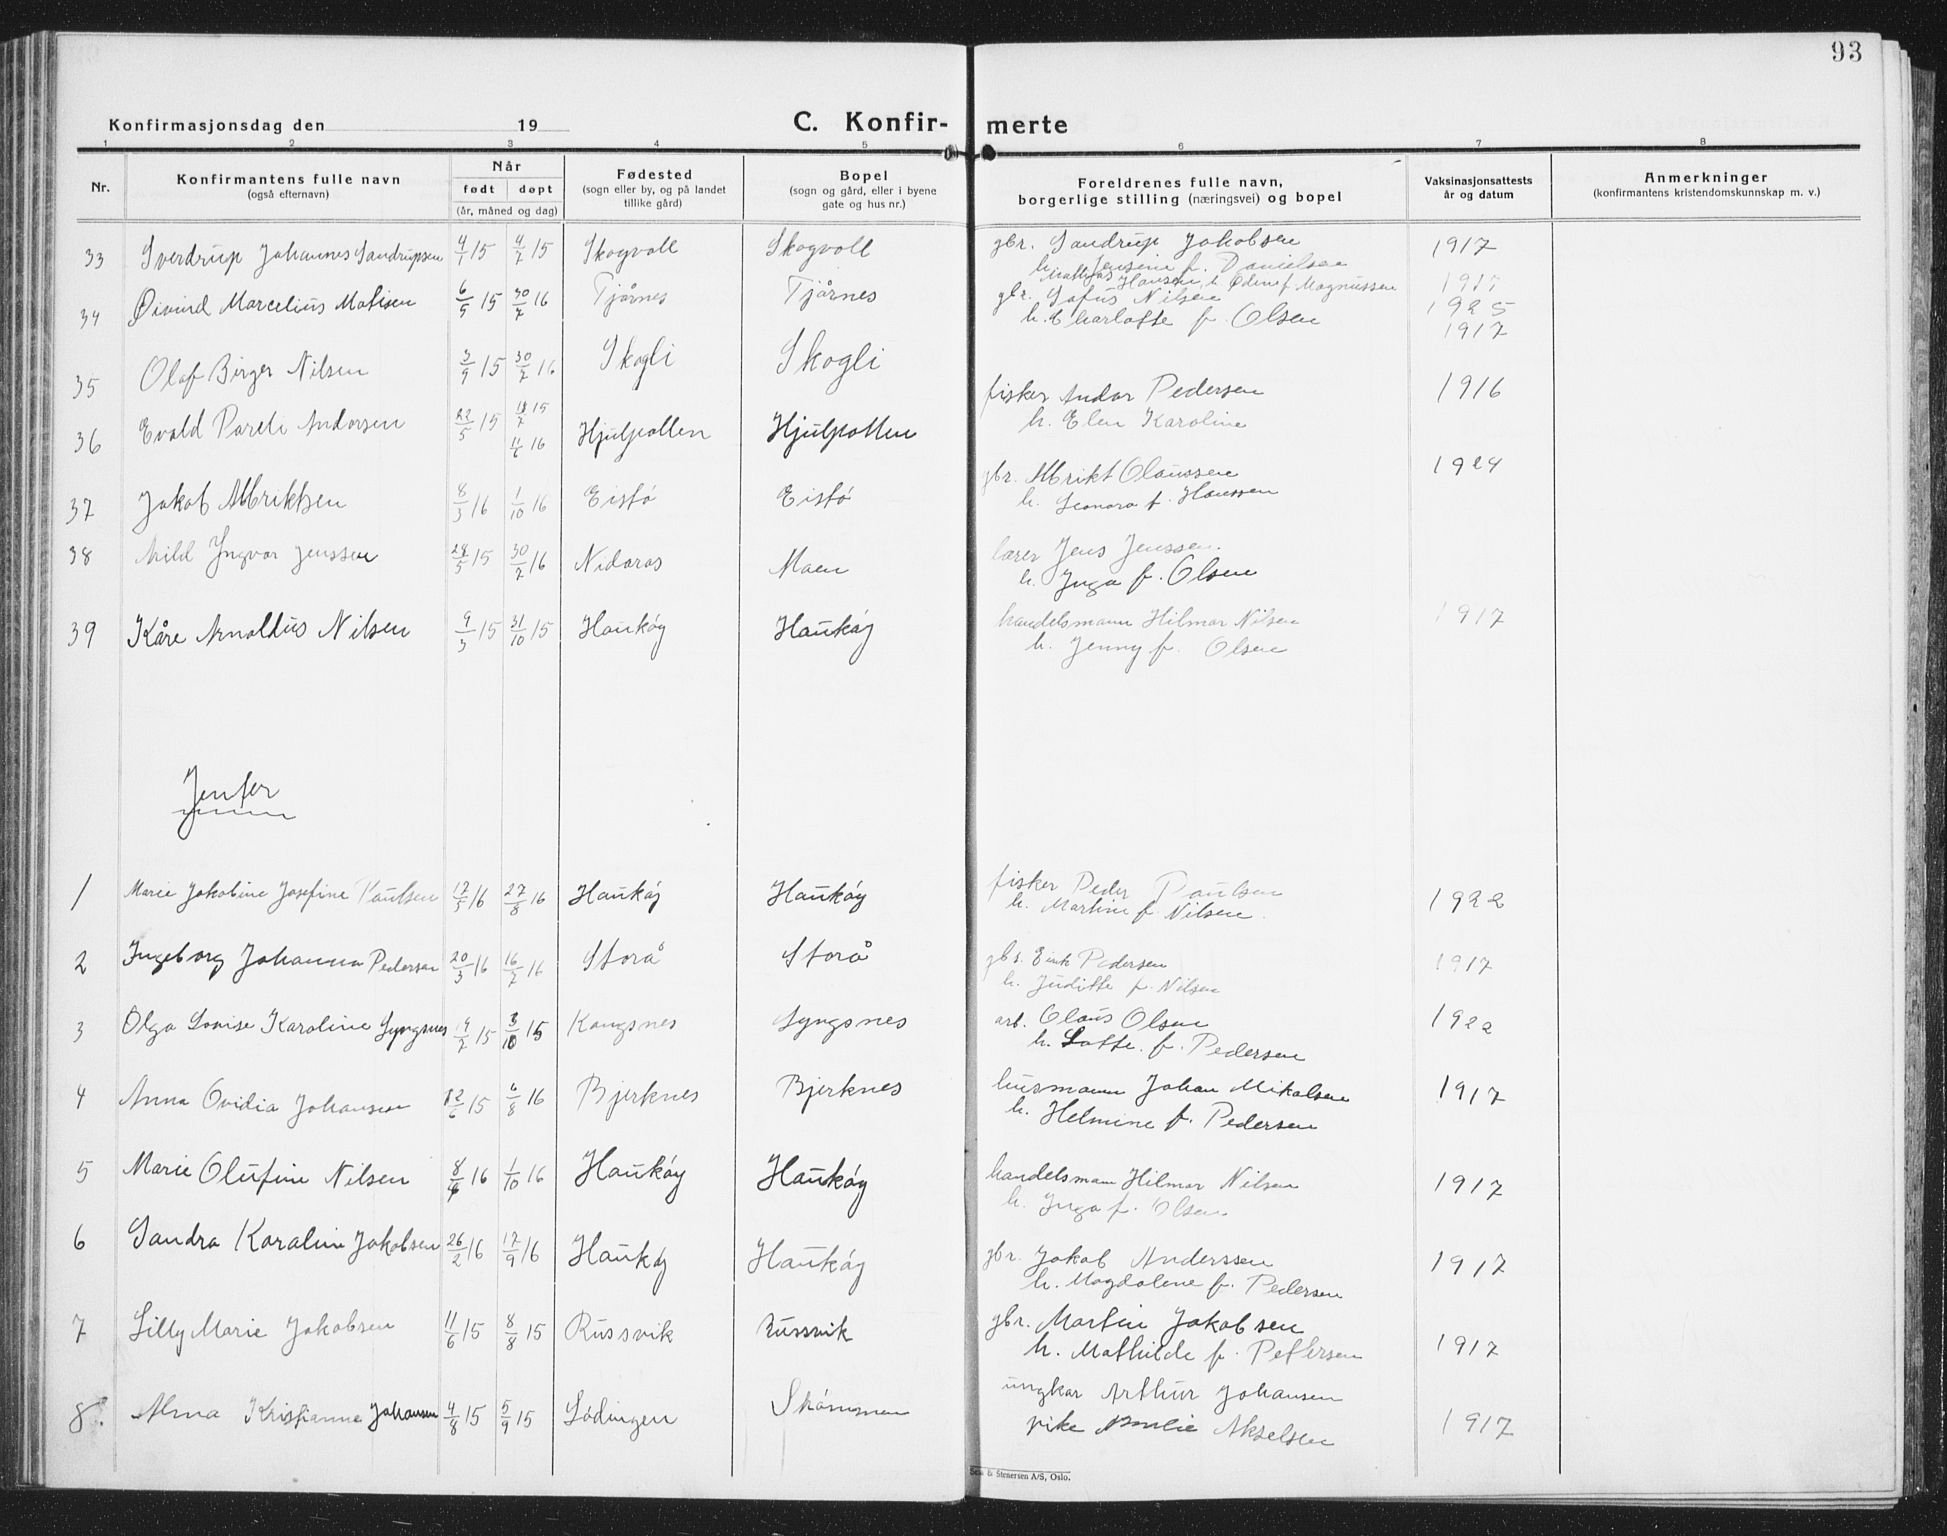 93
Konfirmasjonsdag den 19 C. Konfir- merte
1 2 3 4 5 6 7 8
Nr. Konfirmantens fulle navn (også efternavn) Når født døpt (år, måned og dag) Fødested (sogn eller by, og på landet tillike gård) Bopel (sogn og gård, eller i byene gate og hus nr.) Foreldrenes fulle navn, borgerlige stilling (næringsvei) og bopel Vaksinasjonsattests år og datum Anmerkninger (konfirmantens kristendomskunnskap m. v.)
33 Sverdrup Johannes Sandrupsen 4/1 15 4/7 15 Skogvoll Skogvoll gbr. Sandrup Jakobsen 1917
h. Jensine f. Danielsen
34 Øivind Marcelius Matisen 6/5 15 30/7 16 Tjårnes Tjårnes Mattias Hansen, h. Odine f. Magnussen
gbr. Sofus Nilsen 1925
h. Charlotte f. Olsen 1917
35 Olaf Birger Nilsen 3/9 15 30/7 16 Skogli Skogli
36 Evald Pareli Andorsen 22/5 15 18/7 15 Hjulpollen Hjulpollen fisker Andor Pedersen 1916
16 h. Elen Karoline
37 Jakob Albriktsen 8/3 16 1/10 16 Eisfö Eisfö gbr. Albrikt Olaussen 1924
h. Leonora f. Hanssen
38 Arild Yngvar Jenssen 28/5 15 30/7 16 Nidaros Moen lærer Jens Jenssen.
h. Inga f. Olsen
39 Kåre Arnoldus Nilsen 9/3 15 31/10 15 Haukøy Haukøy handelsmann Hilmar Nilsen 1917
h. Jenny f. Olsen
Jenter
1 Marie Jakobine Josefine Paulsen 17/5 16 27/8 16 Haukøy Haukøy fisker Peder Paulsen 1922
h. Martine f. Nilsen.
2 Ingeborg Johanna Pedersen 20/3 16 16/7 16 Storå Storå gbr. Eirik Pedersen 1917
h. Juditte f. Nilsen
3 Olga Lovise Karoline Lyngsnes 19/7 15 3/10 15 Kangsnes Lyngsnes arb. Olaus Olsen 1922
h. Lotte. f. Pedersen
4 Anna Ovidia Johansen 12/6 15 6/8 16 Bjerknes Bjerknes husmann Johan Mikalsen 1917
h. Helmine f. Pedersen
5 Marie Olufine Nilsen 8/4 16 1/10 16 Haukøy Haukøy handelsmann Hilmar Nilsen 1917
h. Inga f. Olsen
6 Sandra Karoline Jakobsen 26/2 16 17/9 16 Haukøy Haukøy gbr. Jakob Anderssen 1917
h. Magdalene f. Pedersen
7 Lilly Marie Jakobsen 11/6 15 8/8 15 Russvik Russvik gbr. Martin Jakobsen
h. Mathilde f. Pettersen 1917
8. Alma Kristianne Johansen 4/8 15 5/9 15 Lødingen Skömmen ungkar Arthur Johansen
pike Amelie Akselsen 1917
Sem & Stenersen A/S, Oslo.